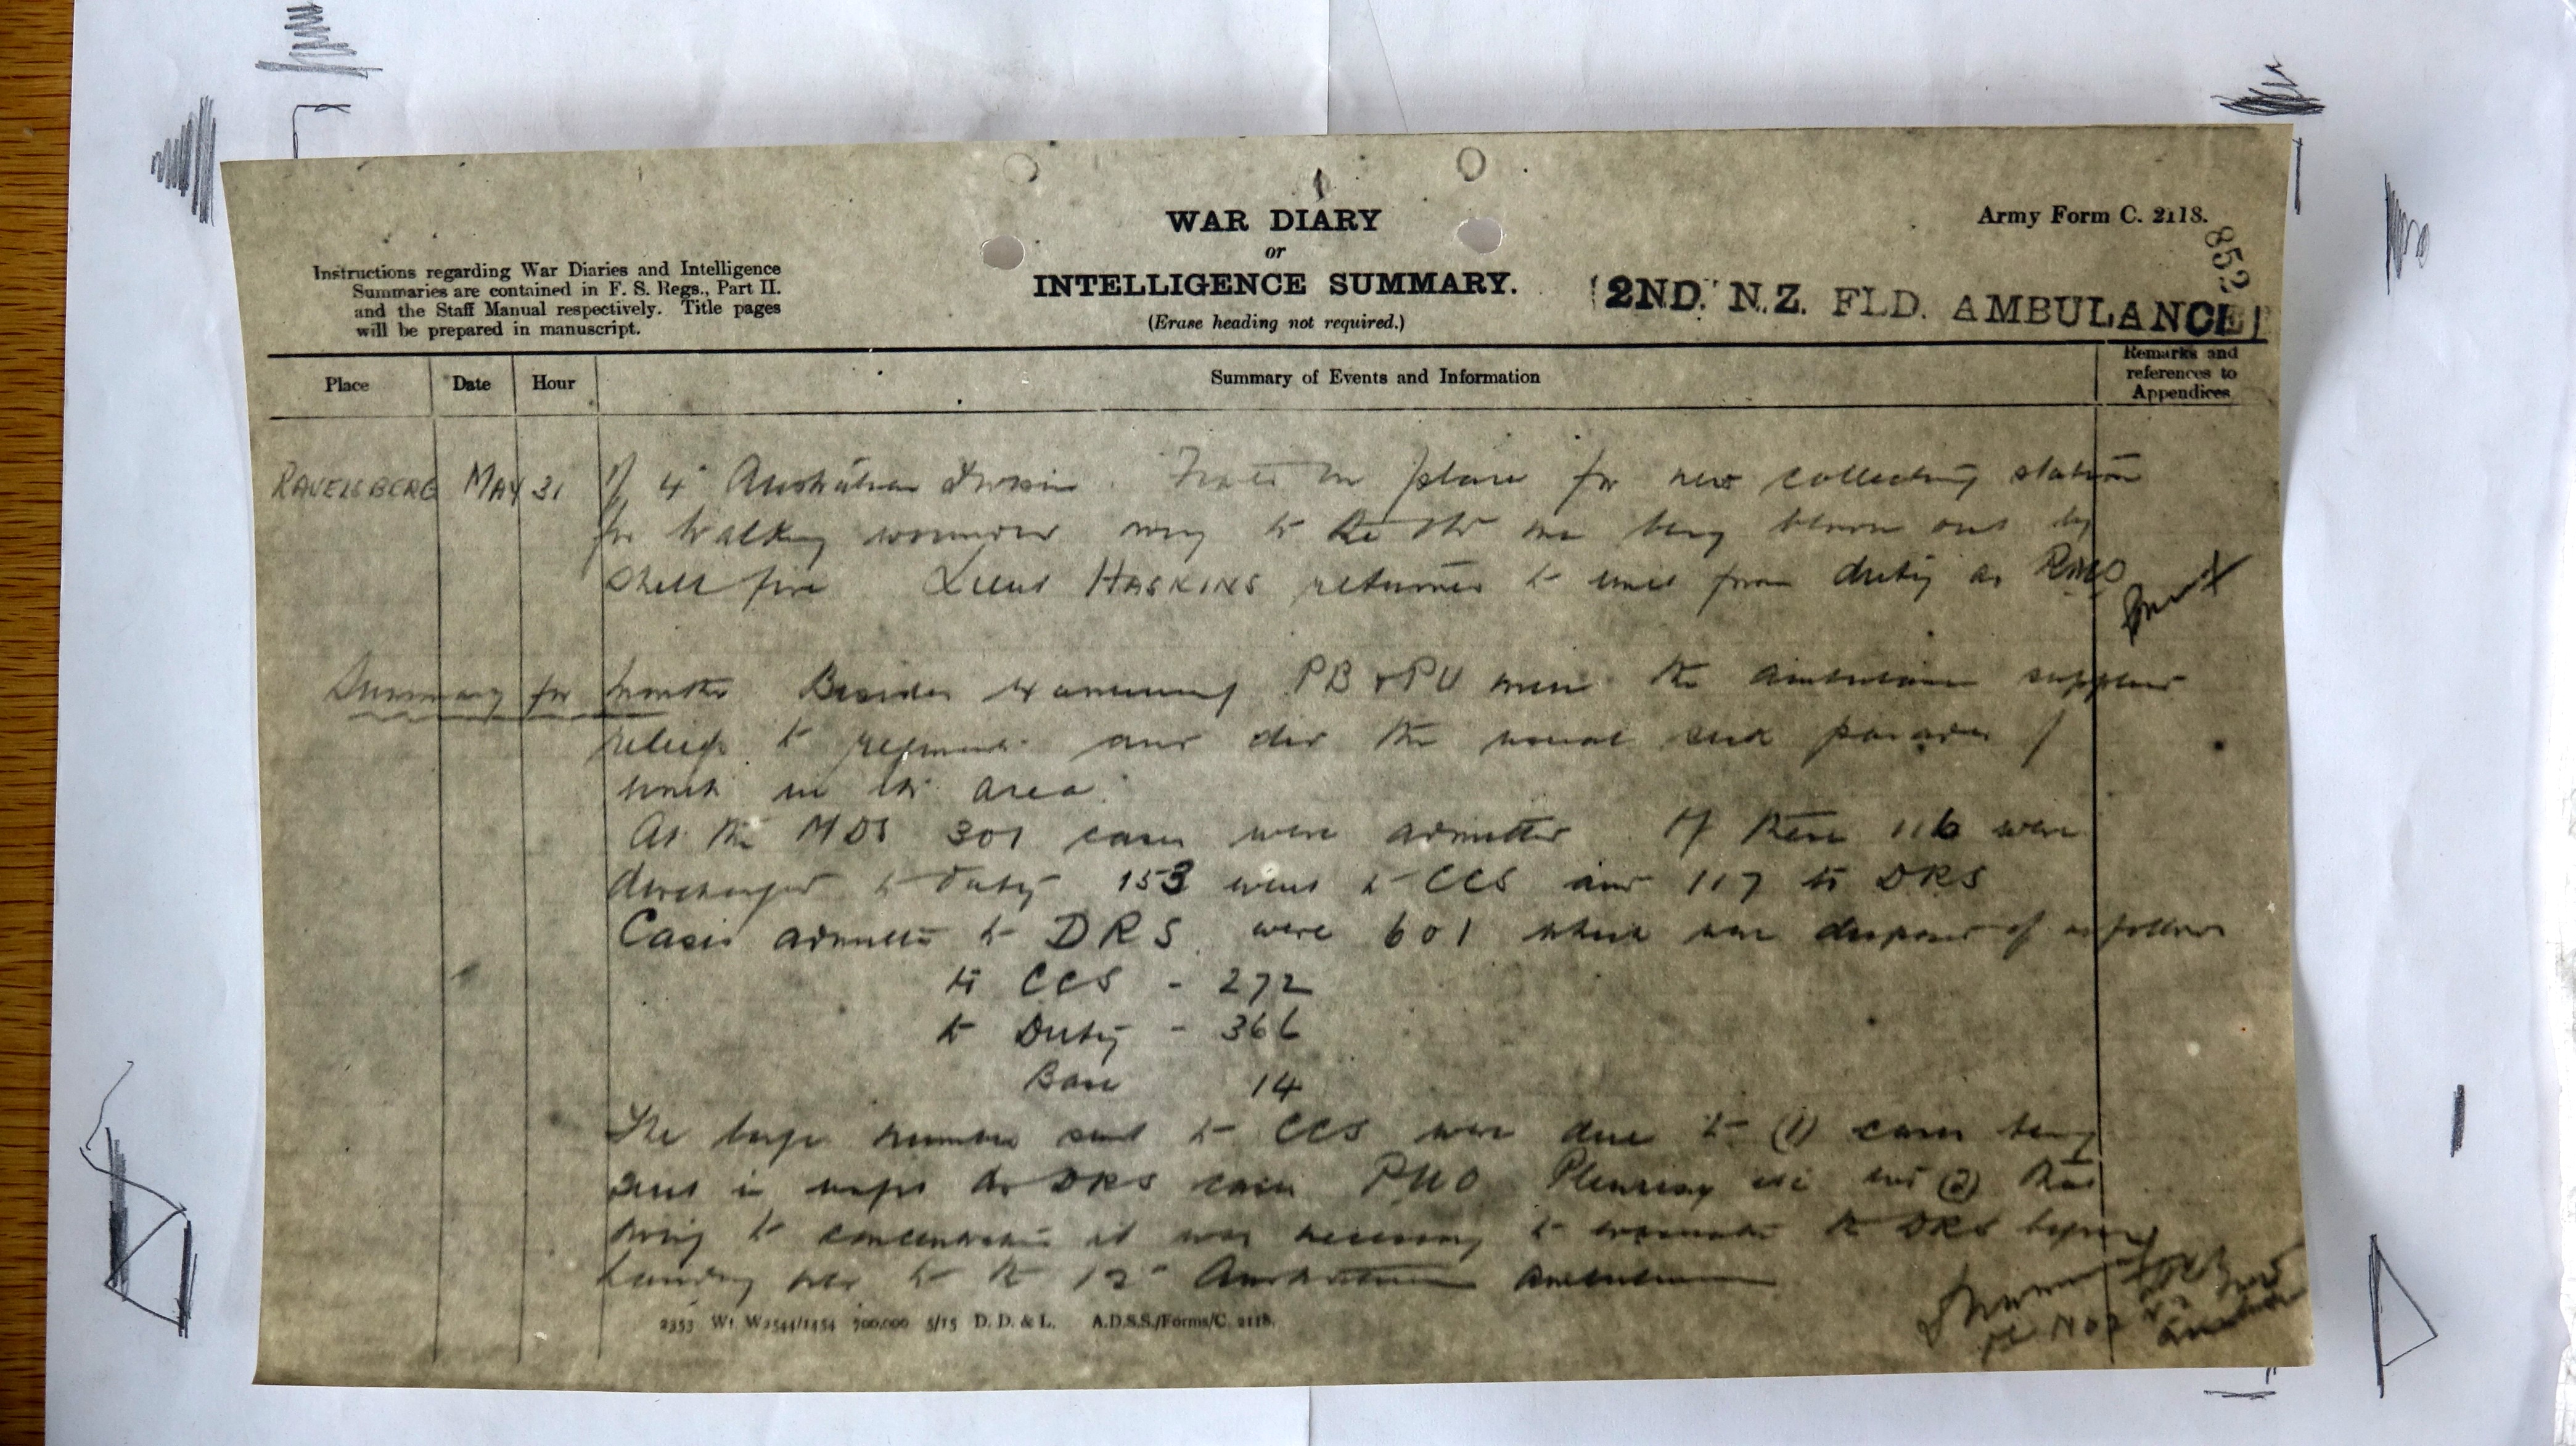 Army Form C. 2118.
852
WAR DIARY
or
INTELLIGENCE SUMMARY.
(Erase heading not required.)
Instructions regarding War Diaries and Intelligence
Summaries are contained in F. S. Regs., Part II.
and the Staff Manual respectively. Title pages
will be prepared in manuscript.
2ND. N.Z. FLD. AMBULANCE
Place Date Hour Summary of Events and Information Remarks and references to Appendices
RAVELSBERG MAY 31 of 4 Australian Division. place for new collecting station
for walking wounded owing to the being blown out by
shell fire Lieut HASKINS returned to unit from duty as RMO
Summary for month Besides examining PB & PU men the ambulance supplied
reliefs to and did the usual sick parades of
units in the area.
At the MDS 301 cases were admitted Of these 116 were
discharged to duty 153 went to CCS and 117 to DRS
Cases admitted to DRS were 601 which were disposed of as follows
to CCS - 272
to Duty - 366
Base 14
The large number sent to CCS were due to (1) cases being
sent in as DRS cases PUO Pleurisy etc and (2) that
owing to concentration it was necessary to evacuate the DRS before
handing over to the 12 Australian Ambulance
2353 Wt W2544/1454 700,000 5/15 D. D. & L. A.D.S.S./Forms/C. 2118.